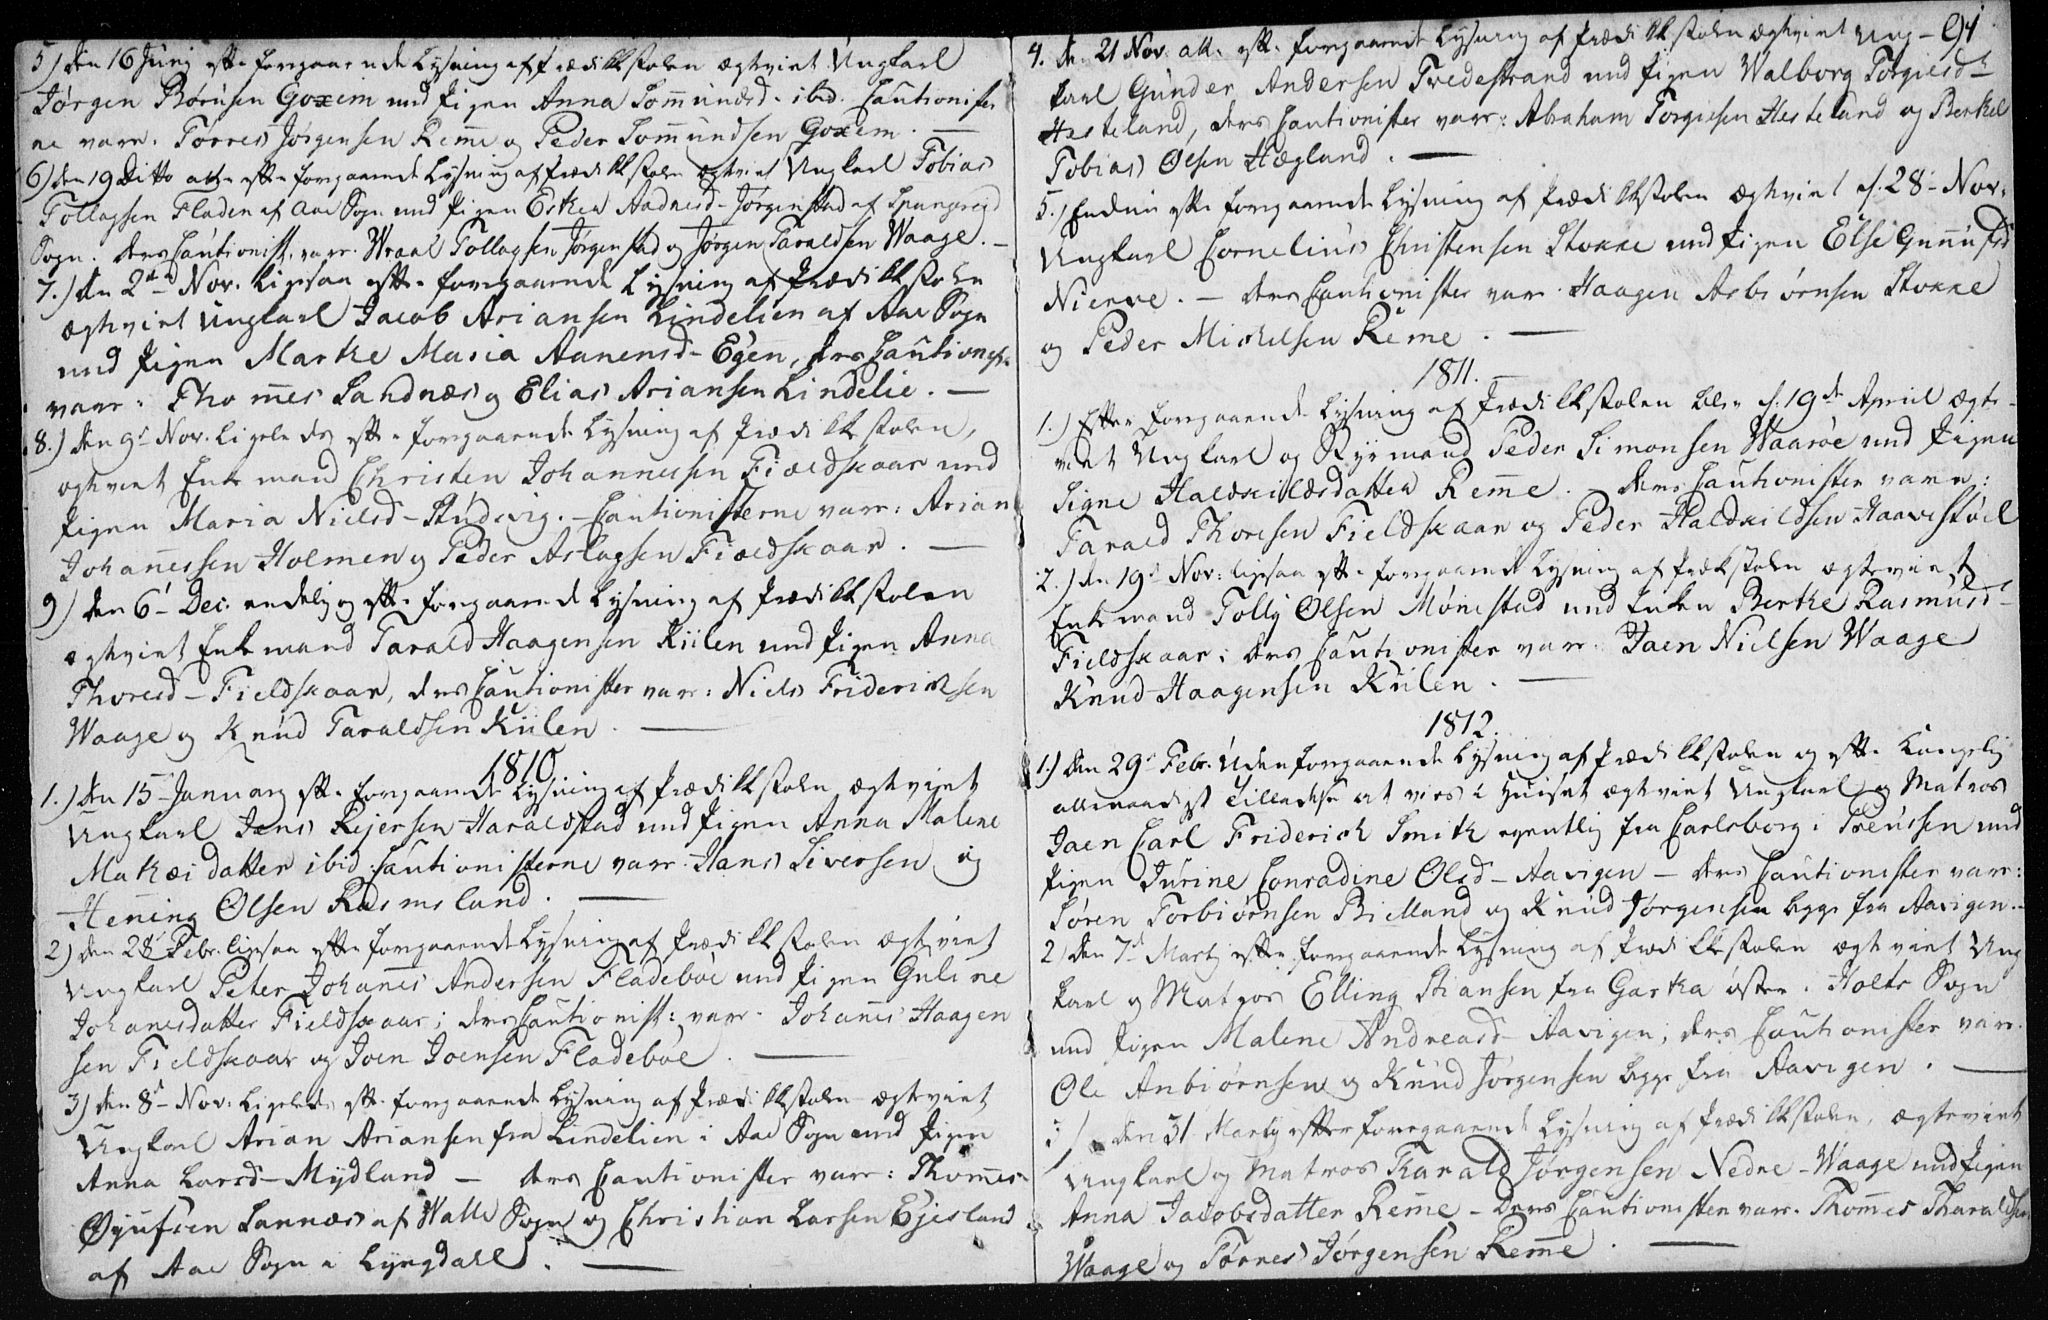 5) den 16 Junij eft. foregaaende Lysning af Prædikestolen ægteviet Ungkarl
Jørgen Børusen Goxem med Pigen Anna Sommundsd. ibid. Cautionister
ne vare. Torres Jørgensen Reme og Peder Sommundsen Goxem. —
6) den 19 Ditto eft. forgaaende Lysning af Prædikestolen ægteviet Ungkarl Tobias
Tollagsen Fladen af Aae Sogn med Pigen Esther Aadnesd- Jørgenstad af Spangereid
Sogn. deres Cautionist. vare. Wraal Tollagsen Jørgenstad og Jørgen Taraldsen Waage. —
7.) den 2den Nov. ligesaa eft. foregaaende Lysning af Prædikestolen
ægteviet Ungkarl Jacob Ariansen Lindelien af Aae Sogn
med Pigen Marthe Maria Aanensd- Egen, deres Cautionist.
vare: Thommes Sandnæs og Elias Ariansen Lindelie. —
8.) den 9d Nov. ligeledes eft. foregaaende Lysning af Prædikestolen,
ægteviet Enkemand Christen Johannessen Fieldskaar med
Pigen Maria Nielsd- Studevig. — Cautionisterne vare: Arian
Johannessen Holmen og Peder Aslagsen Fieldskaar. —
9) den 6t Dec. endelig og eft. foregaaende Lysning af Prædikestolen
ægteviet Enkemand Tarald Haagensen Kiilen med Pigen Anna
Thoresd- Fieldskaar, deres Cautionister vare: Niels Friderichsen
Waage og Knud Taraldsen Kiilen. —
1810
1.) den 15 January eft. foregaaende Lysning af Prædikestolen ægteviet
Ungkarl Jens Rejersen Haraldstad med Pigen Anna Malene
Mathæidatter ibid. Cautionisterne vare. Hans Siversen og
Hening Olsen Rasmsland. —
2) den 28 Febr. ligesaa eft. foregaaende Lysning af Prædikestolen ægteviet
Ungkarl Peter Johannes Andersen Fladebøe med Pigen Guline
Johanesdatter Fieldskaar; deres Cautionist: vare. Johannes Haagen
sen Fieldskaar og Joen Joensen Fladebøe. —
3) den 8d- Nov. ligeledes eft. foregaaende Lysning af Prædikestolen ægteviet
Ungkarl Arian Ariansen fra Lindelien i Aae Sogn med Pigen
Anna Larsd- Mydland — deres Cautionister vare: Thommes
Øyufsen Sannæs af Walle Sogn og Christian Larsen Egesland
af Aae Sogn i Lyngdahl. —
91
4. den 21 Nov. eft. foregaaende Lysning af Prædikestolen ægteviet Ung-
karl Gunder Andersen Tvedestrand med Pigen Walborg Torgiesd-
Hesteland, deres Cautionister vare: Abraham Torgiesen Hesteland og
Tobias Olsen Hægland. —
5.) Endnu eft. foregaaende Lysning af Prædikestolen ægteviet d. 28- Nov.
Ungkarl Cornelius Christensen Stokke med Pigen Else Gunnufsd
Nierve. — deres Cautionister vare. Haagen Asbiørnsen Stokke
og Peder Michelsen Reme. —
1811. —
1.) Efter foregaaende Lysning af Prædikestolen blev d. 19de April ægte-
viet Ungkarl og Ryemand Peder Simonsen Waarøe med Pigen
Signe Haldkildsdatter Remme. — deres Cautionister vare:
Tarald Thoresen Fieldskaar og Peder Haldkildsen Haavestøel
2.) den 19d Nov: ligesaa eft. foregaaende Lysning af Prækstolen ægteviet
Enkemand Tolly Olsen Mønestad med Enken Berthe Rasmusd-
Fieldskaar; deres Cautionister vare. Joen Nielsen Waage
Knud Haagensen Kiilen. —
1812.
1.) den 29d Febr. Uden foregaaende Lysning af Prædikestolen og eft. kongelig
allernaadigst Tilladelse at vies i Huuset ægteviet Ungkarl og Matros
Joen Carl Friderich Smith egentlig fra Carlsborg i Preussen med
Pigen Jurine Conradine Olsd- Aavigen — deres Cautionister vare:
Søren Torbiørnsen Bielland og Knud Jørgensen begge fra Aavigen. —
2) den 7d Martij efter foregaaende Lysning af Prædikestolen ægteviet Ung
karl og Matros Elling Stiansen fra Gartha øster i Holte Sogn
med Pigen Malene Andreasd- Aavigen; deres Cautionister vare.
Ole Anbiørnsen og Knud Jørgensen begge fra Aavigen. —
3) den 31 Martij efter foregaaende Lysning af Prædikestolen, ægteviet
Ungkarl og Matros Tharald Jørgensen Nedre-Waage med Pigen
Anna Jacobsdatter Reme - deres Cautionister vare. Thommes Tharaldsen
Waage og Tørres Jørgensen Remme. —